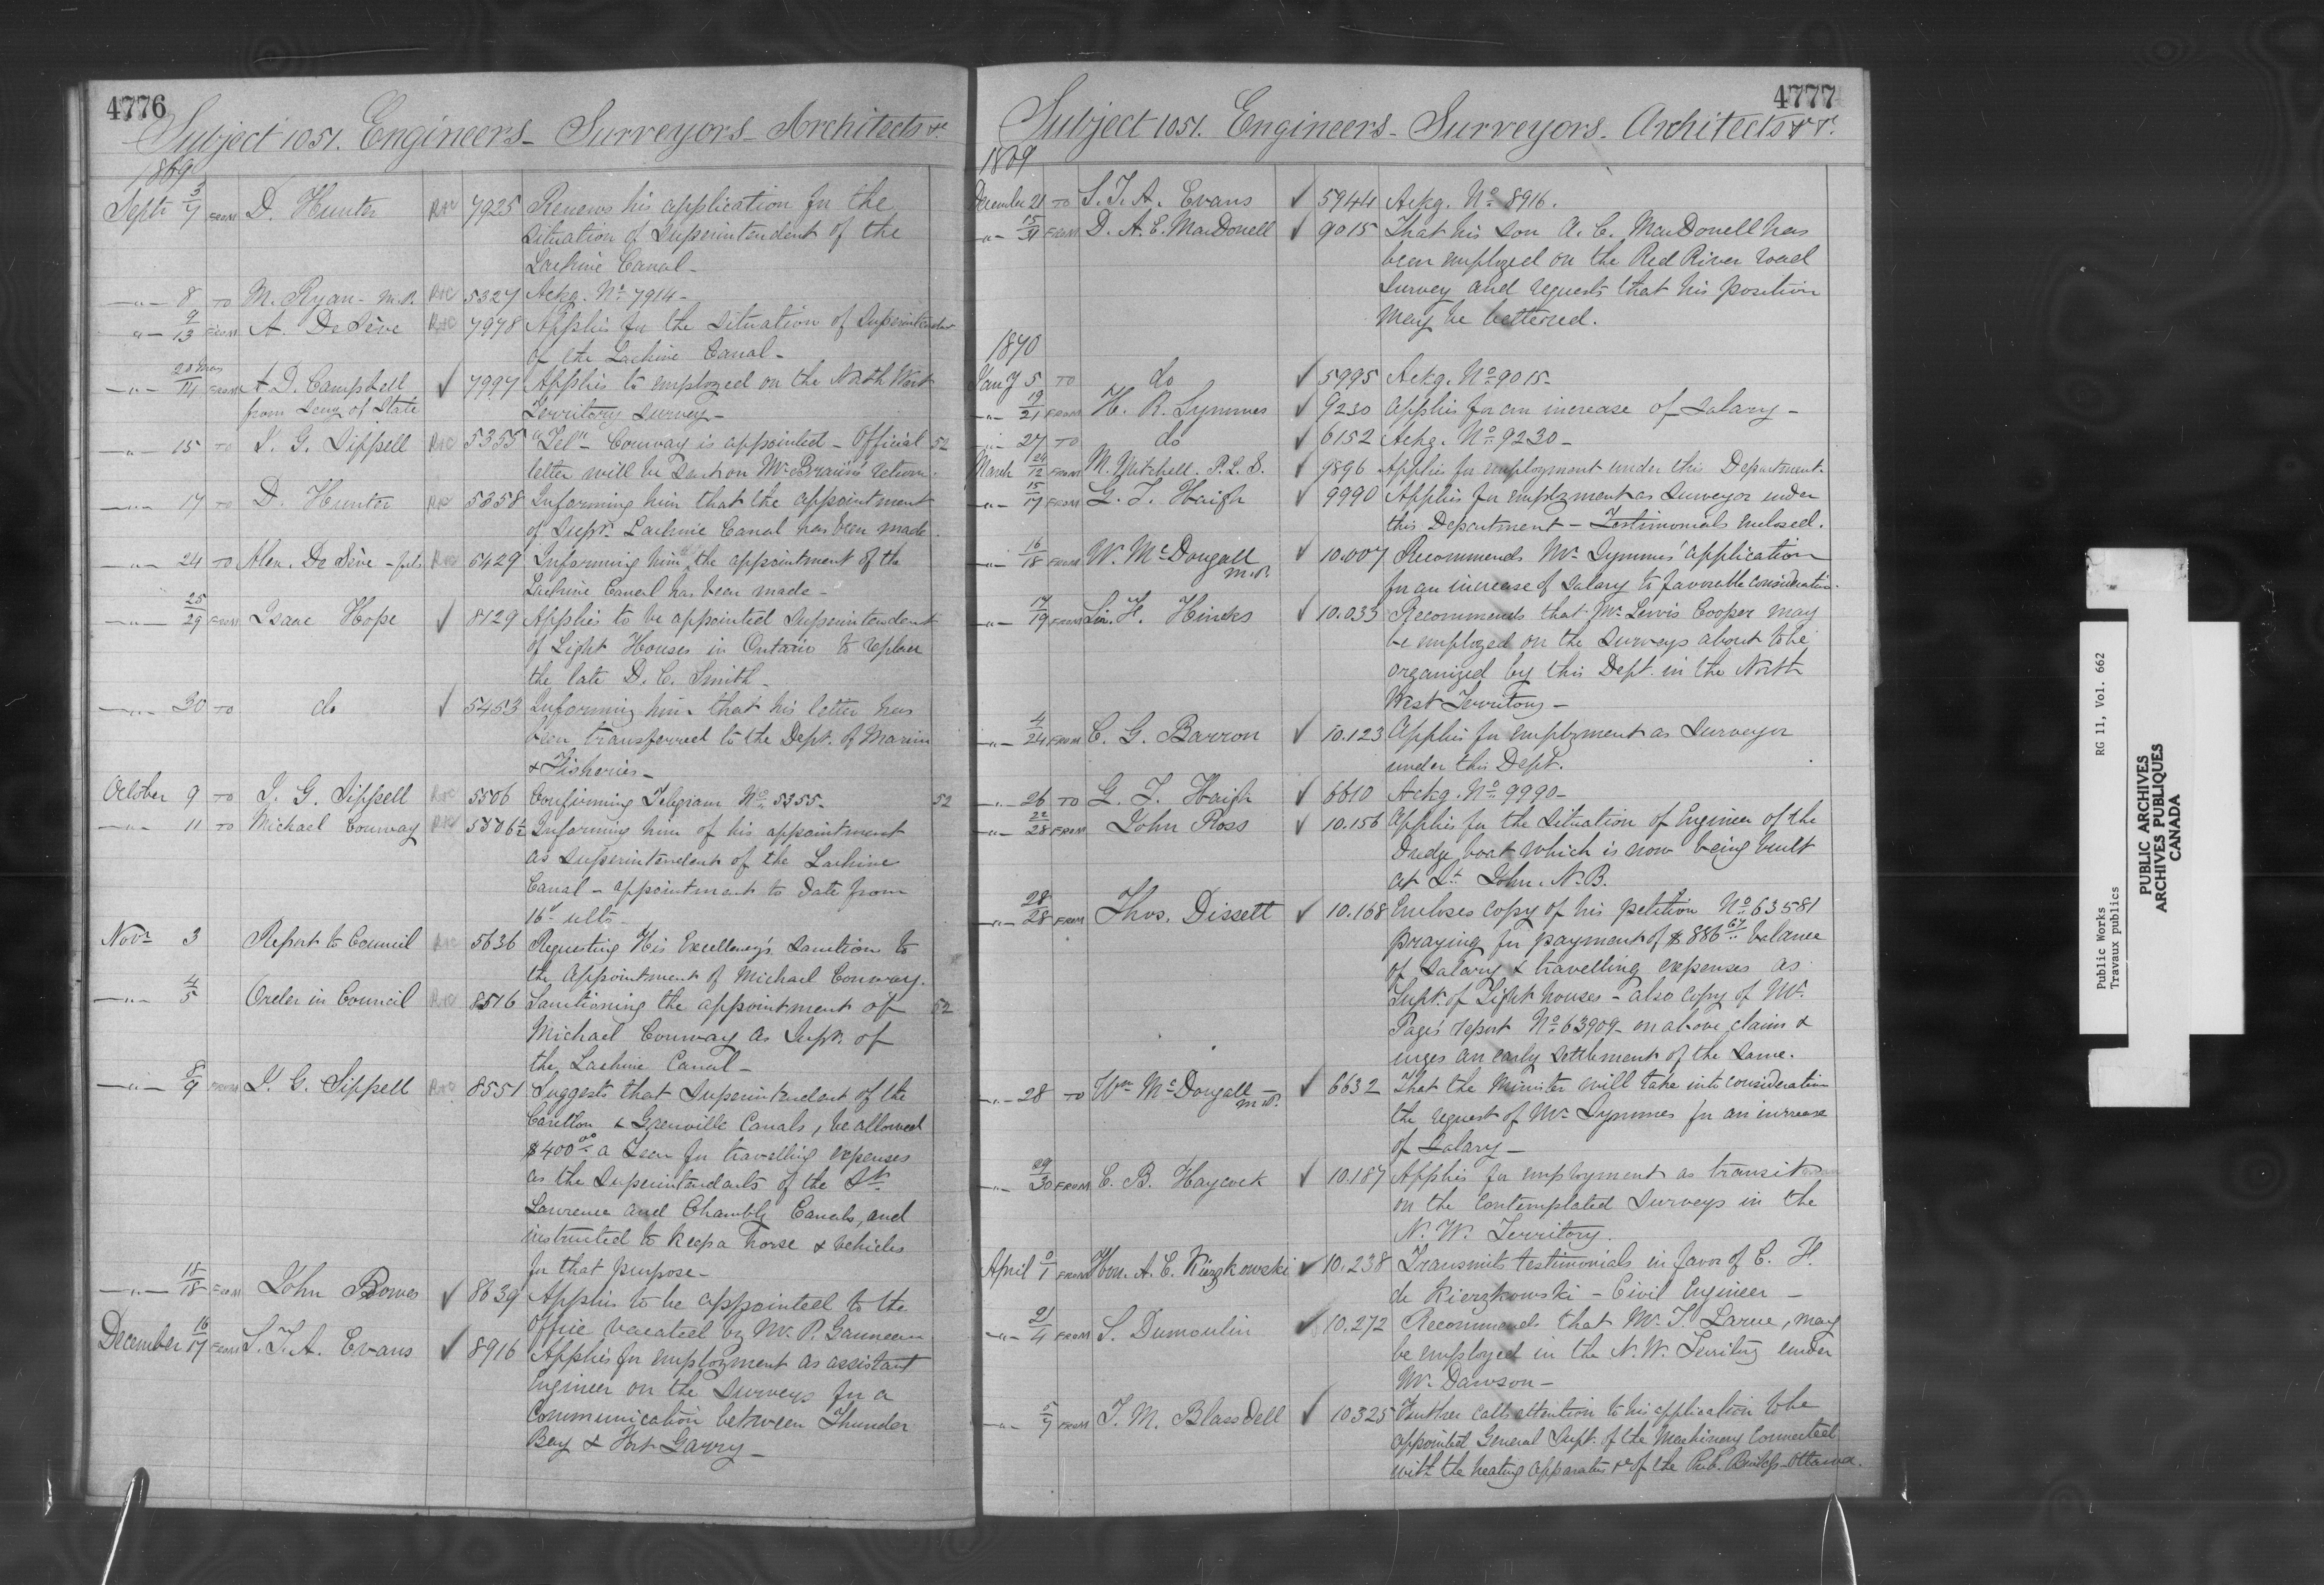 4776
Subject 1051. Engineers - Surveyors - Architects &c
1869
Septr 3/7 FROM D. Hunter 7925 Renews his application for the
situation of Superintendent of the
Lachine Canal -
-"- 8 TO M. Ryan - M.P. 5327 Ackg. No. 7914 -
-"- 9/13 FROM A. De Sève 7978 Applies for the situation of Superintendent
of the Lachine Canal -
-"- 14 FROM A D. Campbell ✓ 7997 Applies to employed on the North West
from Secy of State Territory Survey -
-"- 15 TO J. G. Sippell 5355 "Tel" - Conway is appointed - Official 52
letter will be sent on Mr Braun's return.
-"- 17 TO D. Hunter 5358 Informing him that the appointment
of Supt. Lachine Canal has been made.
-"- 24 TO Alex. De Sève 5429 Informing him the appointment of the
Lachine Canal has been made -
-"- 25/29 FROM Isaac Hope ✓ 8129 Applies to be appointed Superintendent
of Light Houses in Ontario to replace
the late D. C. Smith -
-"- 30 TO do ✓ 5453 Informing him that his letter has
been transferred to the Dept. of Marine
& Fisheries -
October 9 TO J. G. Sippell 5506 Confirming Telegram No. 5355 - 52
-"- 11 TO Michael Conway 5506½ Informing him of his appointment
as Superintendent of the Lachine
Canal - appointment to date from
16th ulto -
Novr 3 Report to Council 5636 Requesting His Excellency's sanction to
the Appointment of Michael Conway.
-"- 4/5 Order in Council 8516 Sanctioning the appointment of 52
Michael Conway as Supt. of
the Lachine Canal -
-"- 8/9 FROM J. G. Sippell 8551 Suggests that Superintendent of the
Carillon & Grenville Canals, be allowed
$400.00 a year for travelling expenses
as the Superintendents of the St.
Lawrence and Chambly Canals, and
instructed to keep a horse & vehicles
for that purpose -
-"- 18 FROM John Bowes ✓ 8639 Applies to be appointed to the
Office vacated by Mr. P. Gauvreau
December 16/17 FROM S. T. A. Evans ✓ 8916 Applies for employment as assistant
Engineer on the Surveys for a
Communication between Thunder
Bay & Fort Garry -
4777
Subject 1051. Engineers - Surveyors - Architects & &c.
1869
December 21 TO S. T. A. Evans ✓ 5944 Ackg. No. 8916.
-"- 15/31 FROM D. A. E. MacDonell ✓ 9015 That his son A. C. MacDonell has
been employed on the Red River road
Survey and requests that his position
may be bettered.
1870
Jany 5 TO do ✓ 5995 Ackg. No. 9015 -
-"- 19/21 FROM H. R. Symmes ✓ 9230 Applies for an increase of Salary -
-"- 27 TO do ✓ 6152 Ackg. No. 9230 -
March 24/12 FROM M. Mitchell. P.L.S. ✓ 9896 Applies for employment under this Department.
-"- 15/17 FROM G. T. Haigh ✓ 9990 Applies for employment as Surveyor under
this Department - Testimonials enclosed.
-"- 16/18 FROM W. McDougall M.P. ✓ 10.007 Recommends Mr. Symmes' application
for an increase of Salary to favorable consideration.
-"- 17/19 FROM Sir F. Hincks ✓ 10.033 Recommends that Mr. Lewis Cooper may
be employed on the Surveys about to be
organized by this Dept. in the North
West Territory -
-"- 4/24 FROM C. G. Barron ✓ 10.123 Applies for employment as Surveyor
under this Dept.
-"- 26 TO G. T. Haigh ✓ 6610 Ackg. No. 9990 -
-"- 22/28 FROM John Ross ✓ 10.156 Applies for the situation of Engineer of the
Dredge boat which is now being built
at St. John. N.B.
-"- 28/28 FROM Thos. Dissett ✓ 10.168 Encloses copy of his petition No. 63581
praying for payment of $886.67 balance
of Salary & travelling expenses as
Supt. of Light houses - also copy of Mr.
Page's report No. 63909 - on above claim &
urges an early settlement of the same.
-"- 28 TO Wm McDougall M.P. ✓ 6632 That the Minister will take into consideration
the request of Mr. Symmes for an increase
of Salary -
-"- 29/30 FROM C. B. Haycock ✓ 10.187 Applies for employment as transit
on the contemplated Surveys in the
N. W. Territory.
April 0/1 FROM Hon. A. E. Kierzkowski ✓ 10.238 Transmits testimonials in favor of C. H.
de Kierzkowski - Civil Engineer -
-"- 21/4 FROM S. Dumoulin ✓ 10.272 Recommends that Mr. T. Larue, may
be employed in the N. W. Territory under
Mr. Dawson -
-"- 5/7 FROM T. M. Blassdell ✓ 10325 Further calls attention to his application to be
appointed General Supt. of the Machinery connected
with the heating apparatus &c of the Pub. Buildgs - Ottawa.
Public Works RG 11, Vol. 662
Travaux publics
PUBLIC ARCHIVES
ARCHIVES PUBLIQUES
CANADA